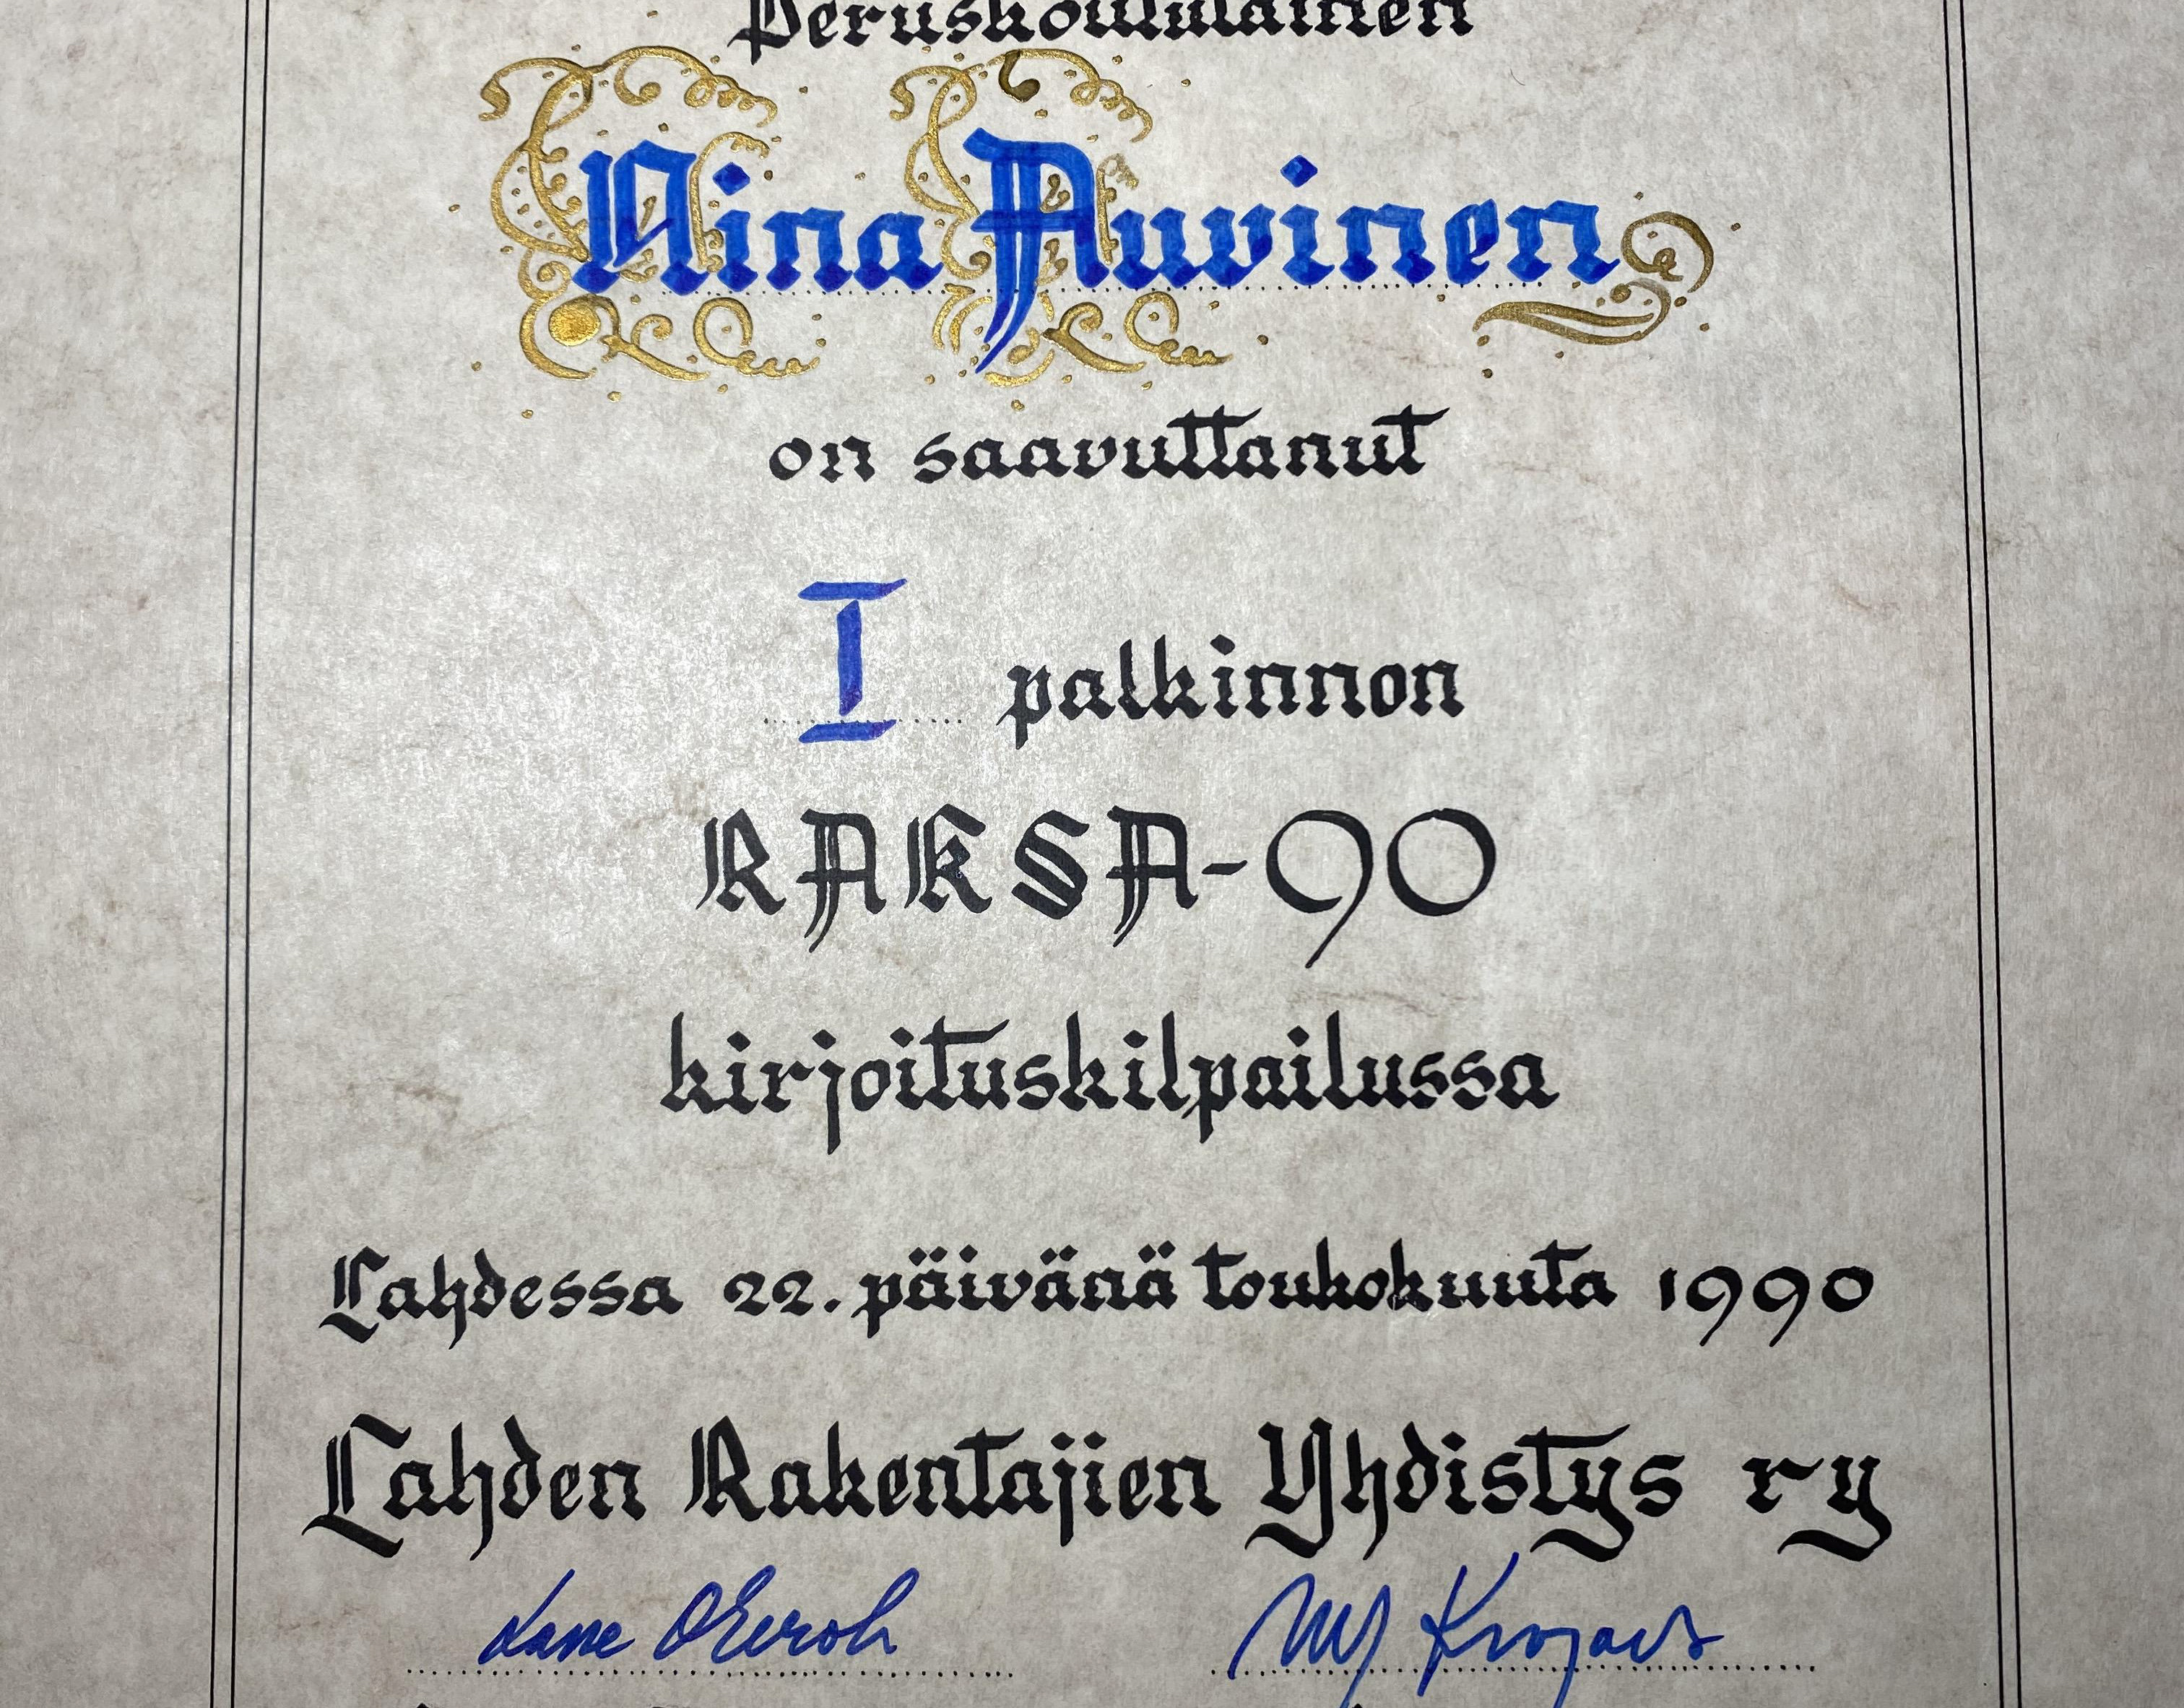 Peruskoululainen
Nina Auvinen
on saavuttanut
I palkinnon
RAKSA-90
kirjoituskilpailussa
Lahdessa 22. päivänä toukokuuta 1990
Lahden Rakentajien Yhdistys ry